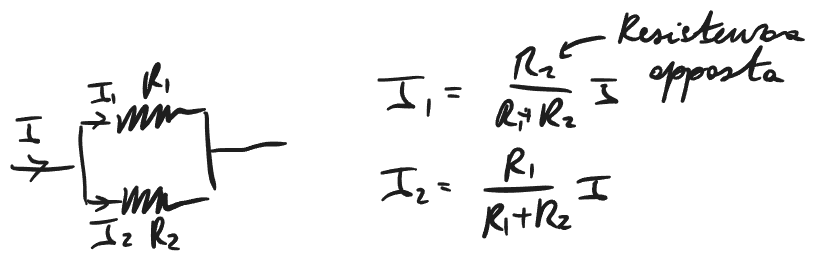 I
I₁ R₁
I₂ R₂
I₁ = R₂ / (R₁+R₂) I
Resistenza
opposta
I₂ = R₁ / (R₁+R₂) I